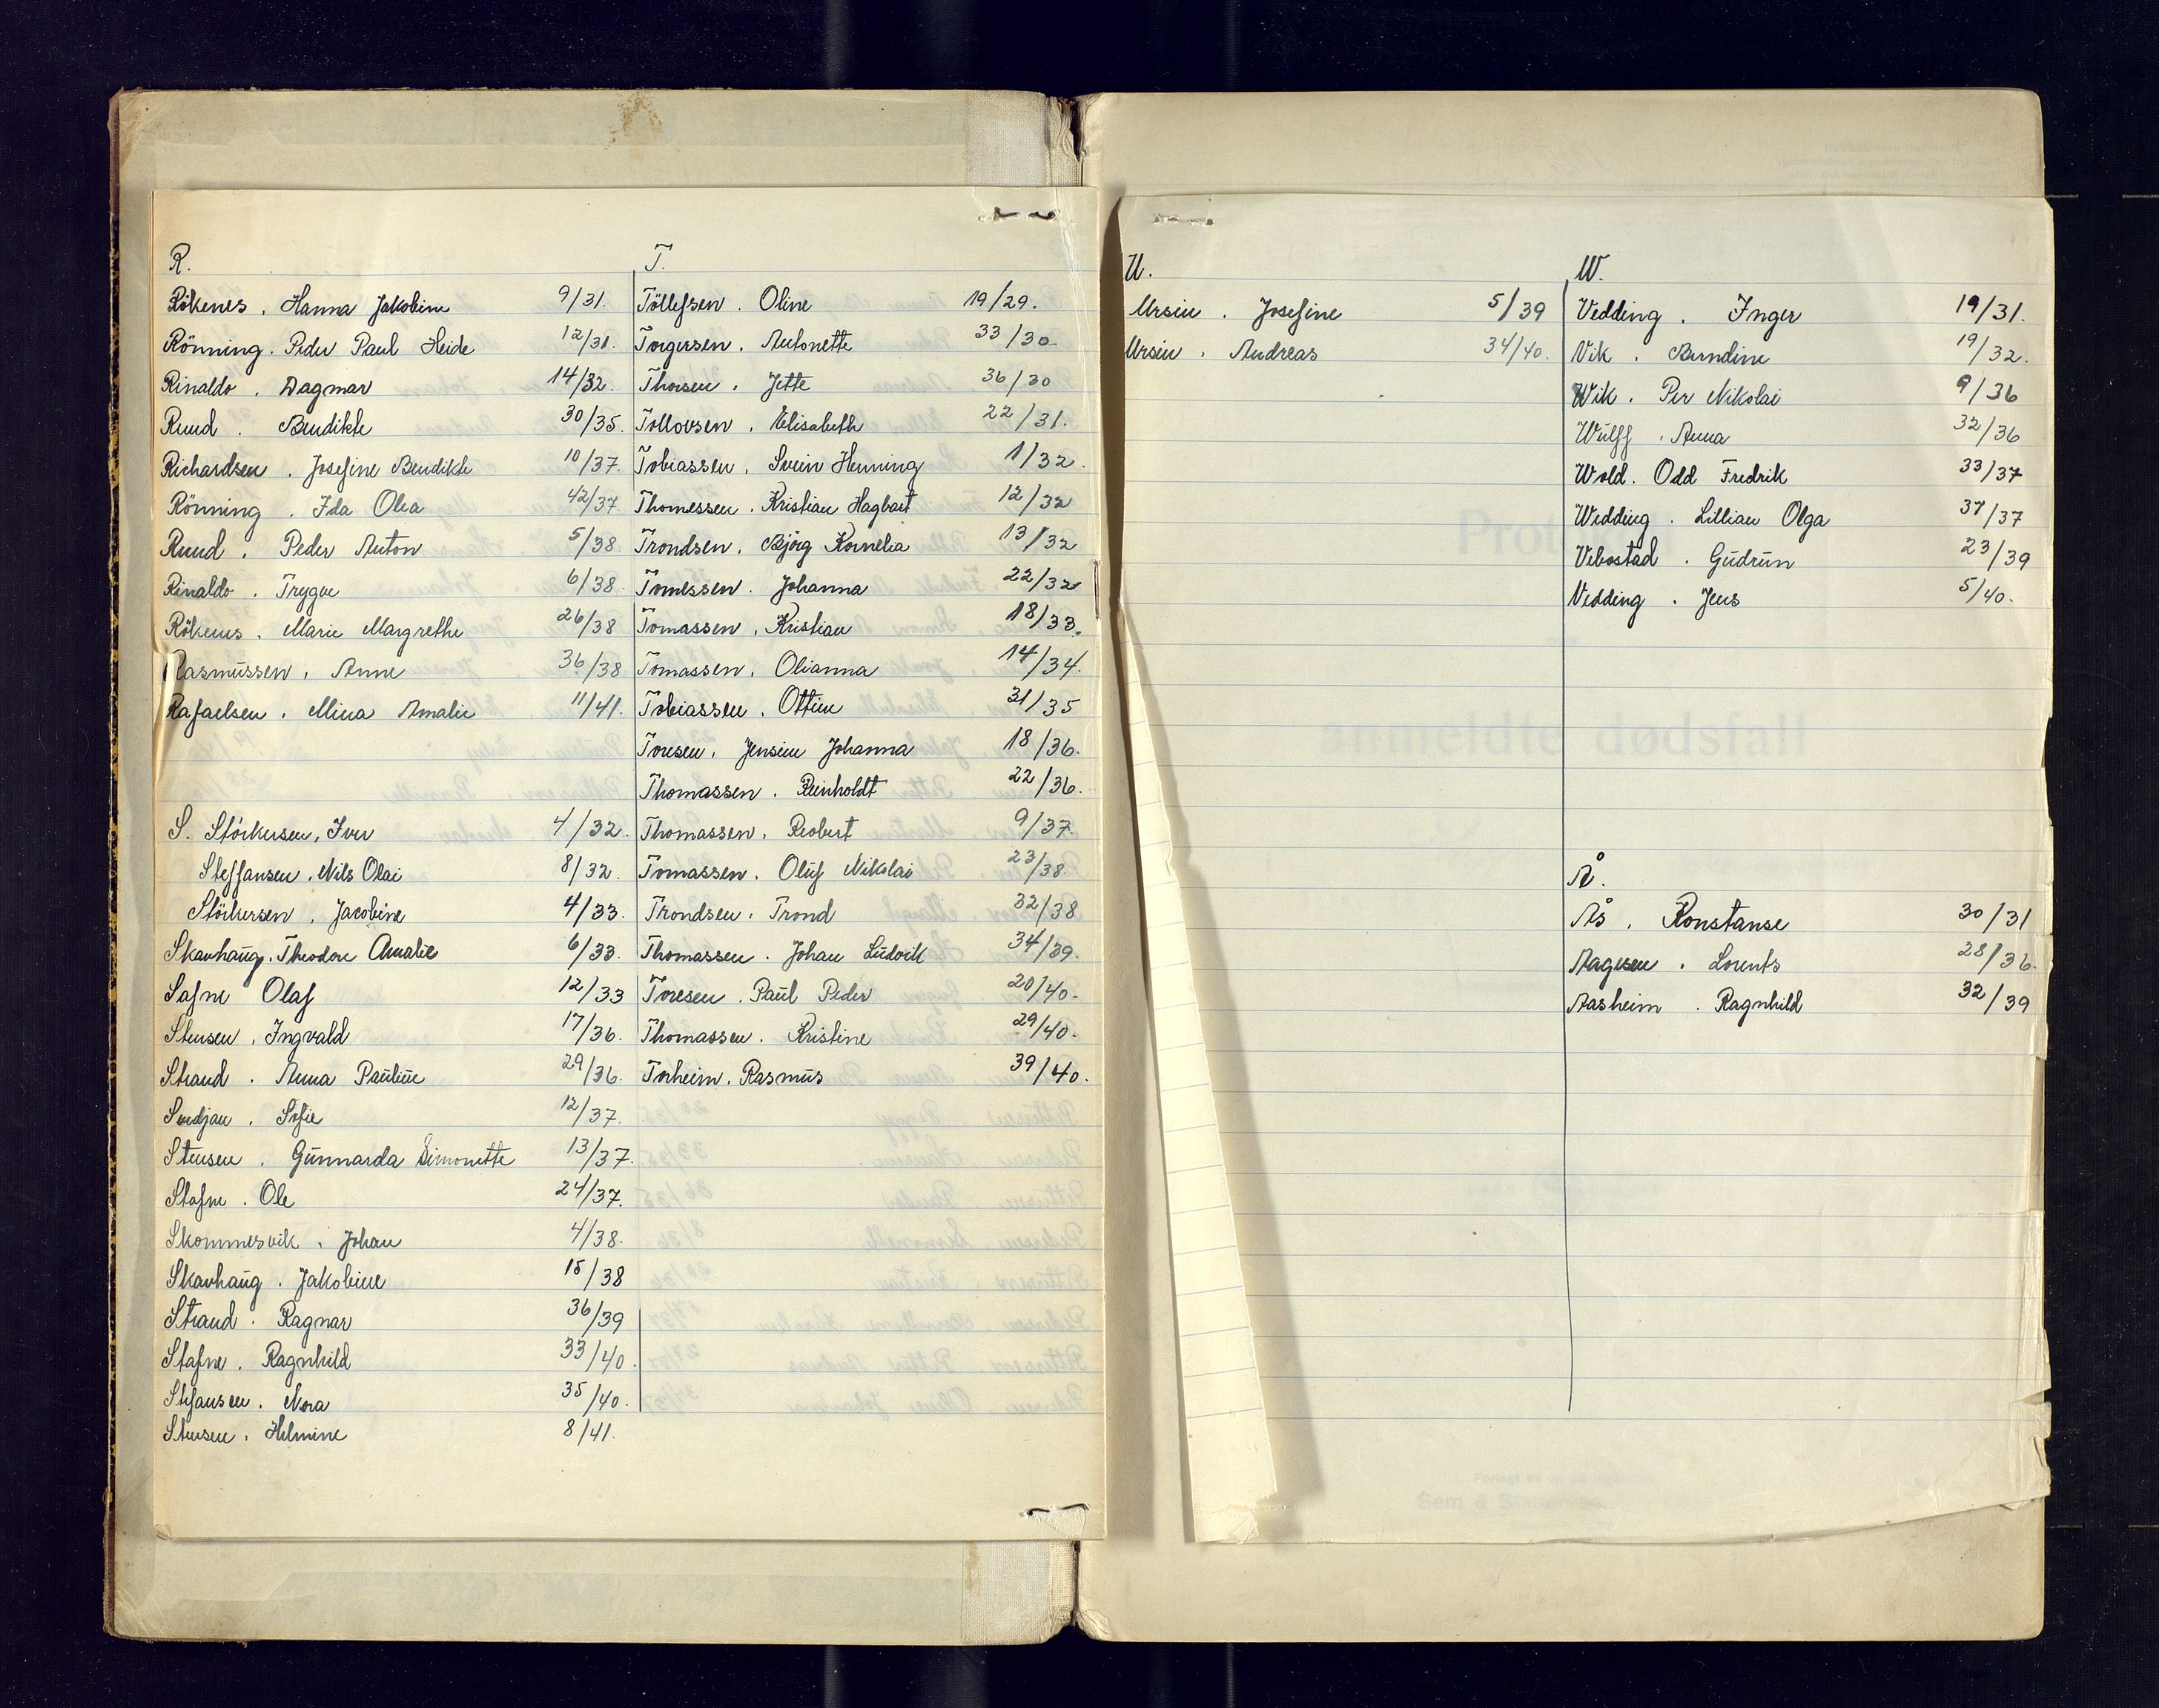 R.
Rökenes. Hanna Jakobine 9/31.
Rönning. Peder Paul Heide 12/31.
Rinaldo. Dagmar 14/32.
Ruud. Bendikte 30/35.
Richardsen. Josefine Bendikte 10/37.
Rönning. Ida Olea 42/37
Ruud. Peder Anton 5/38
Rinaldo. Trygve 6/38.
Rökenes. Marie Margrethe 26/38
Rasmussen. Anne 36/38
Rafaelsen. Mina Amalie 11/41.
S. Störkersen, Iver 4/32.
Steffansen. Nils Olai 8/32.
Störkersen. Jacobine 4/33.
Skavhaug. Theodore Amalie 6/33.
Safne Olaf 12/33
Stensen. Ingvald 17/36.
Strand. Anna Pauline 29/36.
Svedjan. Sofie 12/37.
Stensen. Gunnarda Simonette 13/37.
Stafne. Ole 24/37.
Skommesvik. Johan 4/38.
Skavhaug. Jakobine 15/38
Strand. Ragnar 36/39
Stafne. Ragnhild 33/40.
Stefansen. Nora 35/40.
Stensen. Helmine 8/41.
T.
Töllefsen. Oline 19/29.
Torgersen. Antonette 33/30
Thorsen. Jette 36/30
Tollovsen. Elisabeth 22/31.
Tobiassen. Svein Henning 1/32.
Thomessen. Kristian Hagbart 12/32
Trondsen. Björg Kornelia 13/32
Tomessen. Johanna 22/32
Tomassen. Kristian 18/33.
Tomassen. Olianna 14/34.
Tobiassen. Ottine 31/35
Toresen. Jensine Johanna 18/36.
Thomassen. Reinholdt 22/36.
Thomassen. Robert 9/37.
Tomassen. Oluf Nikolai 23/38.
Trondsen. Trond 32/38
Thomassen. Johan Ludvik 34/39.
Toresen. Paul Peder 20/40.
Thomassen. Kristine 29/40.
Torheim. Rasmus 39/40.
U.
Ursin. Josefine 5/39
Ursin. Andreas 34/40.
W.
Vedding. Inger 19/31.
Vik. Berndine 19/32.
Wik. Per Nikolai 9/36
Wulff. Anna 32/36
Wold. Odd Fredrik 33/37
Wedding. Lillian Olga 37/37
Vebostad. Gudrun 23/39
Vedding. Jens 5/40.
Å.
Ås. Konstanse 30/31
Aagesen. Lorents 28/36.
Aasheim. Ragnhild 32/39
anmeldte dødsfall